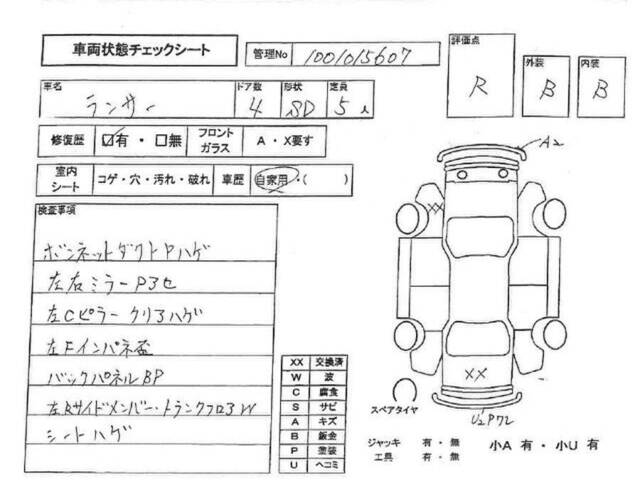 車両状態チェックシート
管理No 1001015607
評価点 R
外装 B
内装 B
車名 ランサー
ドア数 4
形状 SD
定員 5
修復歴 ☑有・☐無
フロントガラス A・X要す
室内シート コゲ・穴・汚れ・破れ
車歴 自家用・( )
検査事項
ボンネットダクトPハゲ
左右ミラーP3セ
左Cピラー クリアハゲ
左Fインパネ歪
バックパネルBP
左Rサイドメンバー・トランクフロアW
シートハゲ
A2
XX
XX
U2P72
XX 交換済
W 波
C 腐食
S サビ
A キズ
B 鈑金
P 塗装
U ヘコミ
スペアタイヤ
ジャッキ 有・無
工具 有・無
小A 有・小U 有